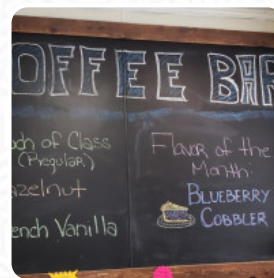 OFFEE BAR
ch of Class
(Regular)
azelnut
ench Vanilla
Flavor of the
Month:
BLUEBERRY
COBBLER